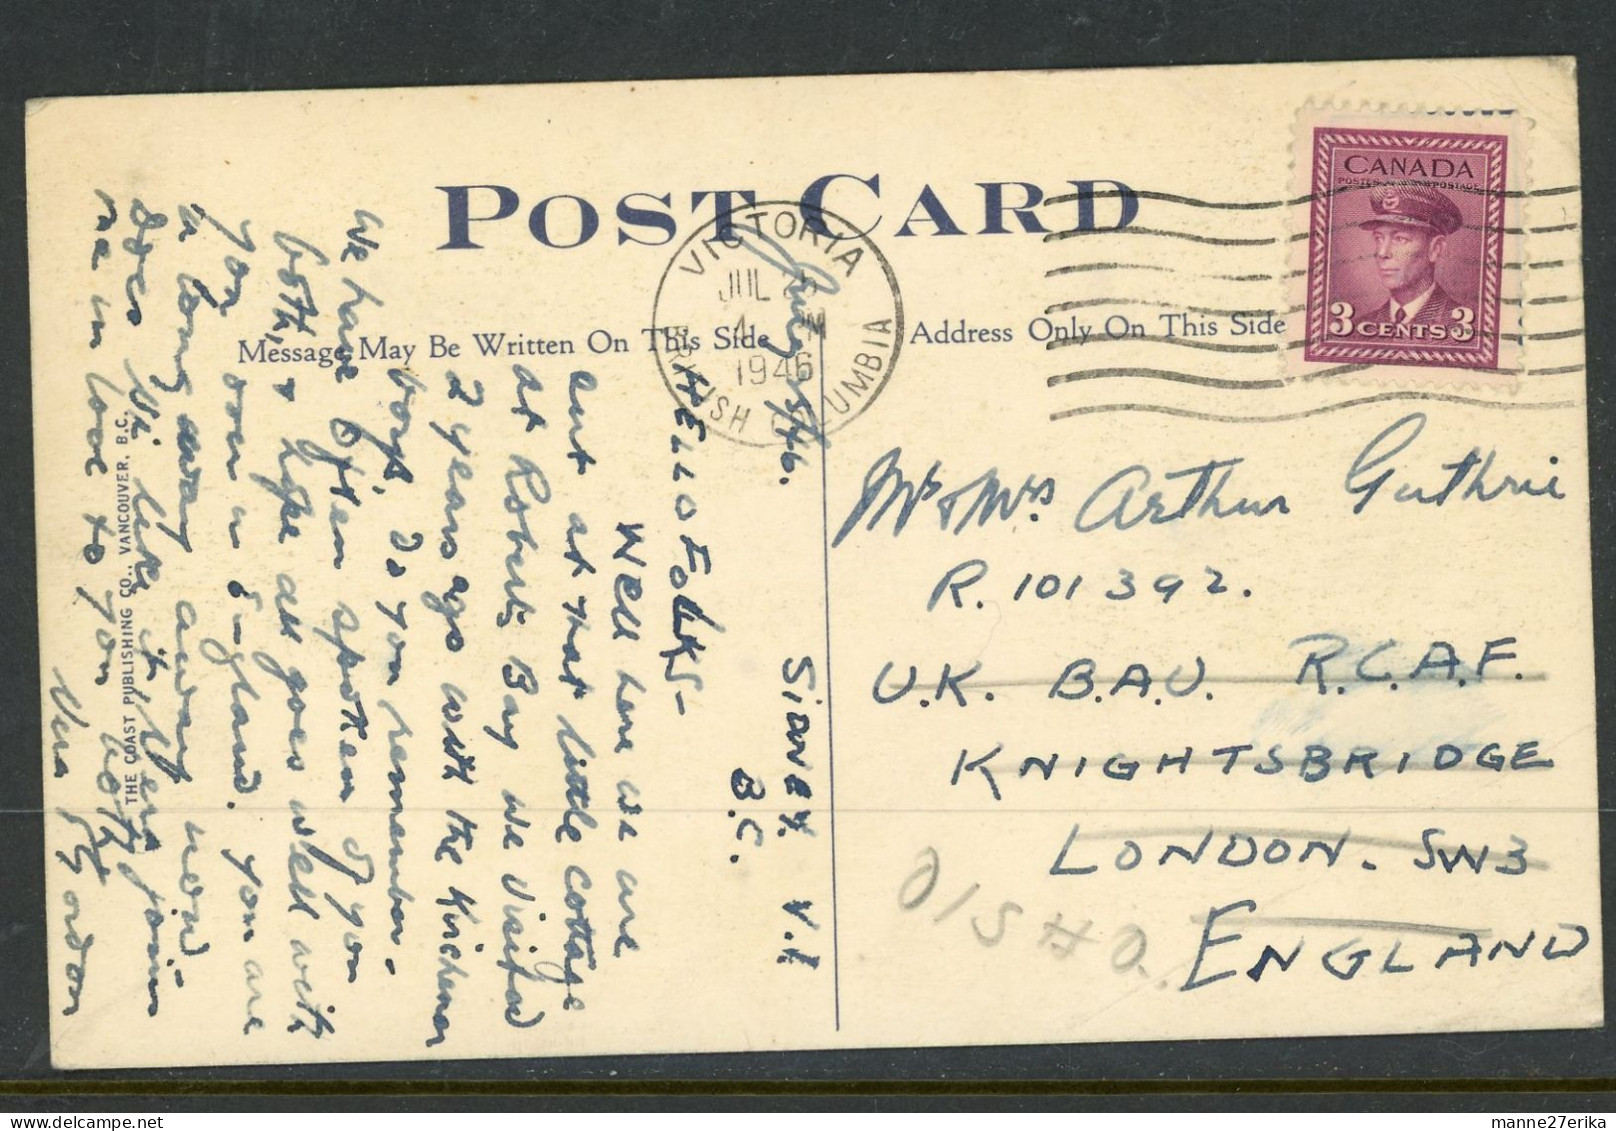 POST CARD
Message May Be Written On This Side
Address Only On This Side
VICTORIA
JUL
4 PM
1946
BRITISH COLUMBIA
CANADA
POSTES POSTAGE
3 CENTS 3
July 5/46.
Sidney. V.I
B.C.
HELLO FOLKS-
Well here we are
out at that little cottage
at Roberts Bay we visited
2 years ago with the Kirchener
boys. Do you remember.
We have often spoken of you
both, & hope all goes well with
you over in England. You are
a long way away now.
Does Vi like it, Vera joins
me in love to you both.
Gordon
THE COAST PUBLISHING CO., VANCOUVER, B.C.
Mr & Mrs Arthur Guthrie
R. 101392.
U.K. B.A.U. R.C.A.F.
KNIGHTSBRIDGE
LONDON. SW3
ENGLAND
manne27erika